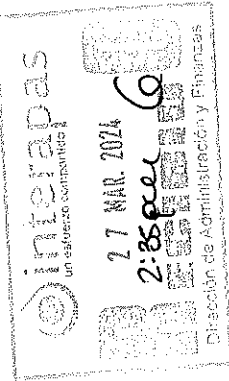 interapas
un esfuerzo compartido
27 MAR. 2024
2:35pm
Dirección de Administración y Finanzas